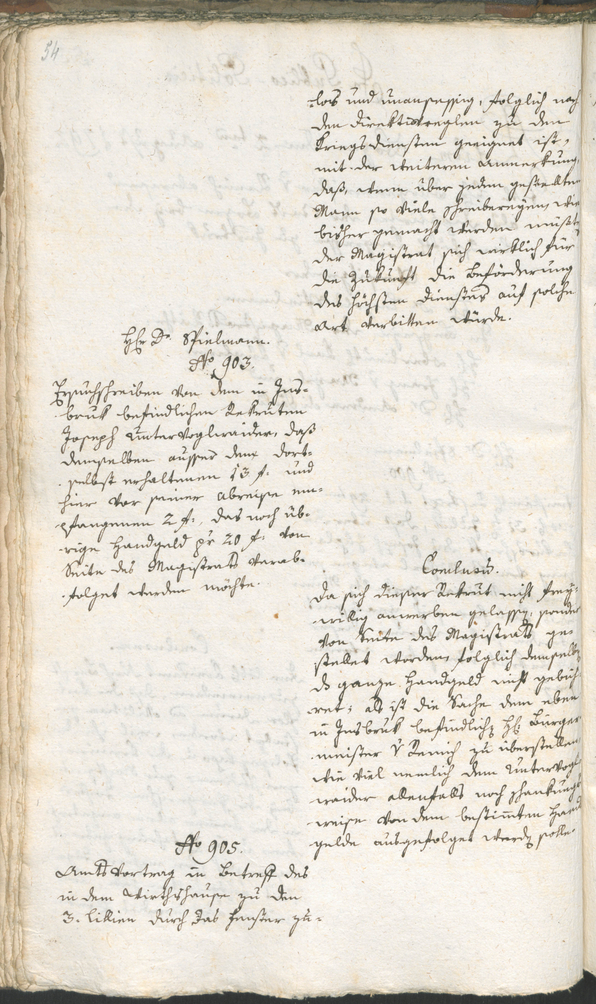 54
-los und unansessig, folglich nach
den Direktivreglen zu den
Kriegsdiensten geeignet ist,
mit der weiteren Anmerkung,
daß, wenn über jeden gestellten
Mann so viele Schreibereyen, wie
bisher gemacht werden müßten
der Magistrat sich wirklich für
die Zukunft die Beförderung
des höchsten Dienstes auf solche
Art verbitten würde.
Hr. D. Spielmann.
No. 903.
Ersuchschreiben von dem in Ins-
bruk befindlichen Rekruten
Joseph Untervoglwaider, daß
demselben ausser dem dort-
selbst erhaltenen 13 f. und
hier vor seiner Abreise em-
pfangenen 2 f., das noch üb-
rige Handgeld pr 20 f. von
Seite des Magistrats verab-
folget werden möchte.
Conclusum.
Da sich dieser Rekrut nicht frey-
willig anwerben gelassen, sonder
von Seite des Magistrats ge-
stellet worden, folglich demselben
das ganze Handgeld nicht gebüh-
ret; als ist die Sache dem eben
in Insbruk befindlichen Hr. Bürger
meister v Remich zu überstellen
wie viel nemlich dem Untervogl
waider allenfalls noch schankungs
weise von dem bestimten Hand
gelde ausgefolget werden solle.
No. 905.
Amtsvortrag in Betreff des
in dem Wirthshause zu den
3. Lilien durch das Fenster zu-